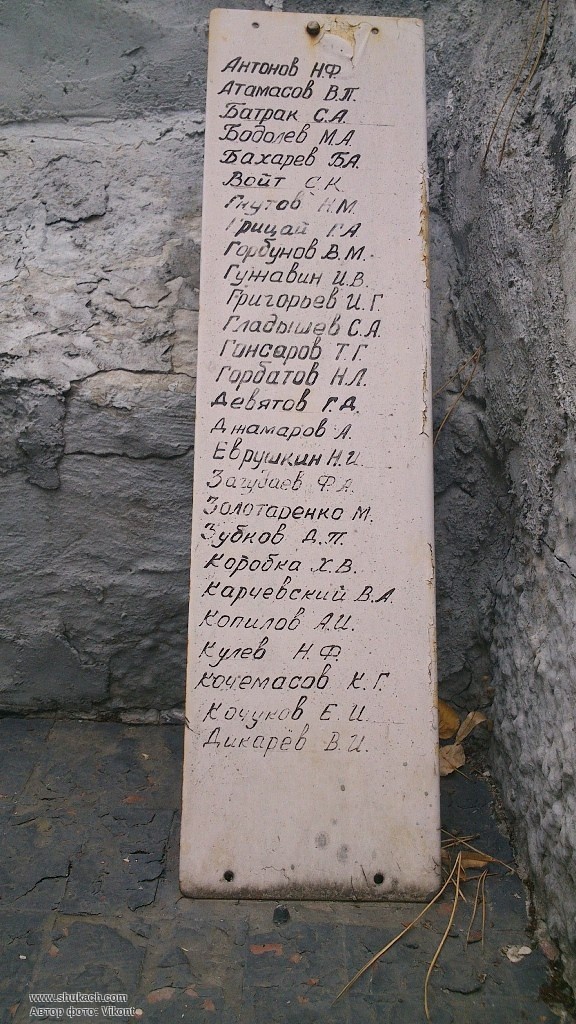 Антонов Н.Ф.
Атамасов В.П.
Батрак С.А.
Бодолев М.А.
Бахарев Б.А.
Войт С.К.
Гнутов Н.М.
Грицай Г.А.
Горбунов В.М.
Гужавин И.В.
Григорьев И.Г.
Гладышев С.А.
Гонсаров Т.Г.
Горбатов Н.Л.
Девятов Г.Д.
Джамаров А.
Еврушкин Н.И.
Загудаев Ф.А.
Золотаренко М.
Зубков Д.П.
Коробка Х.В.
Карчевский В.А.
Копилов А.И.
Кулев Н.Ф.
Кочемасов К.Г.
Кочуков Е.И.
Дикарёв В.И.
www.shukach.com
Автор фото: Vikont